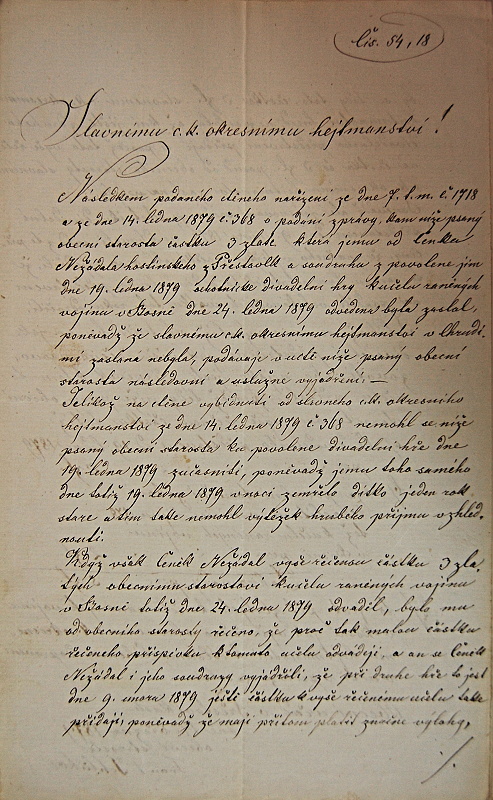 čis. 54, 18
Slavnímu c. k. okresnímu hejtmanství!
Následkem podaného cteného nařízení ze dne 7. t. m. č. 1718
a ze dne 14. ledna 1879 č 368 o podání zprávy, kam níže psaný
obecní starosta částku 3 zlaté která jemu od Čenka
Nežádala hostinského z Přestavlk a soudruhů z povolené jim
dne 19. ledna 1879 ochotnické divadelní hry k účelu raněných
vojínu v Bosni dne 24. ledna 1879 odvedena byla zaslal,
ponivadž že slavnému c. k. okresnímu hejtmanství v Chrudi-
mi zaslána nebyla, podávaje v úctě níže psaný obecní
starosta následovní a uslužné vyjádření. —
Jelikož na ctěné vybídnutí od slavného c. k. okresního
hejtmanství ze dne 14. ledna 1879 č 368 nemohl se níže
psaný obecní starosta ku povolené divadelní hře dne
19. ledna 1879 zučasniti, poněvadž jemu toho samého
dne totiž 19. ledna 1879 v noci zemřelo dítko jeden rok
staré a tím také nemohl výtěžek hrubého příjmu vzhléd-
nouti.
Když však Čeněk Nežádal výše řečenou částku 3 zla-
tých obecnímu starostovi k účelu raněných vojínu
v Bosni totiž dne 24. ledna 1879 odváděl, bylo mu
od obecního starosty řečeno, že proč tak malou částku
řečeného příspěvku k tomuto účelu odvádějí, a an se Čeněk
Nežádal i jeho soudruzy vyjádřili, že při druhé hře to jest
dne 9. února 1879 ještě částku k výše řečenému účelu také
přidají, poněvadž že mají přitom platit značné výlohy,
./.